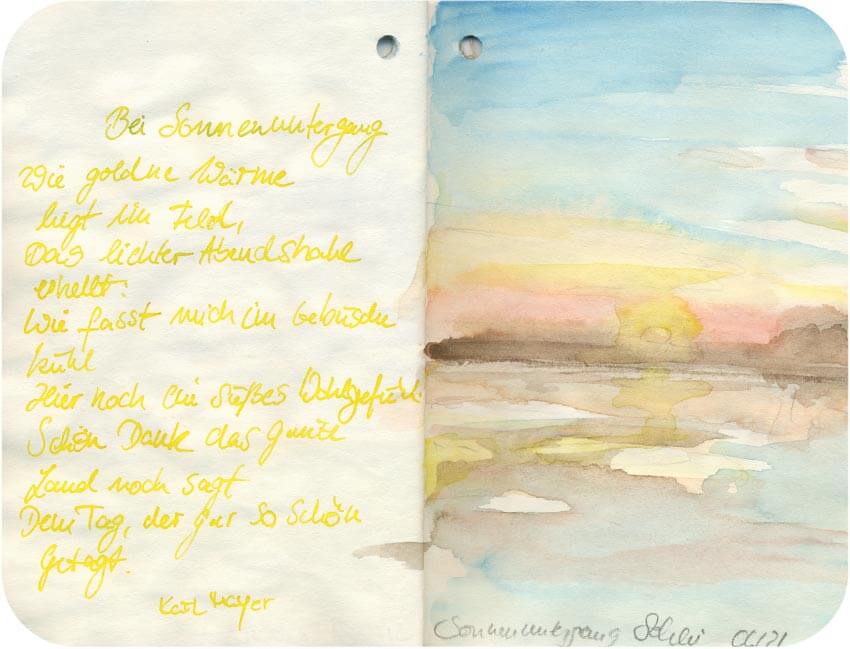 Bei Sonnenuntergang
Wie goldne Wärme
liegt im Feld,
Das lichter Abendstrahl
erhellt!
Wie fasst mich im Gebüsche
kühl
Hier noch ein süßes Wohlgefühl.
Schön Dank das ganze
Land noch sagt
Dem Tag, der gar so schön
getagt.
Karl Mayer
Sonnenuntergang Schlei